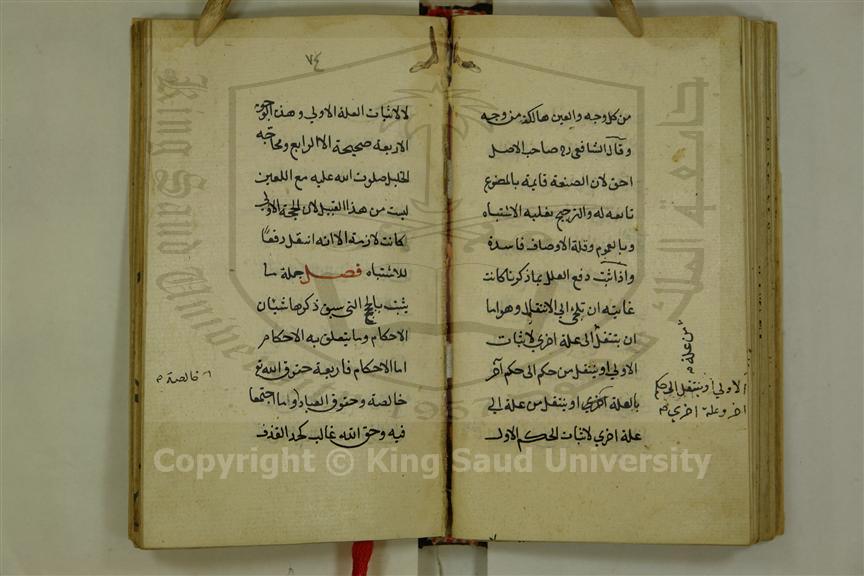 من كل وجه والعين هالكة من وجه
وقال الشافعي رح صاحب الاصل
احق لان الصنعة قايمة بالمصنوع
تابعه له والترجيح بغلبة الاشتباه
وبالعموم وقلة الاوصاف فاسدة
واذا ثبت دفع العلل بما ذكرنا كانت
غايته ان تلجئ الى الانتقال وهو اما
ان ينتقل الى علة اخرى لاثبات
الاولى او ينتقل من حكم الى حكم آخر
بالعلة الاولى او ينتقل من علة الى
علة اخرى لاثبات الحكم الاول
من علة
الاولى او ينتقل الى حكم
آخر وعلة اخرى
٧٤
لا لاثبات العلة الاولى وهذه الوجوه
الاربعة صحيحة الا الرابع ومحاجة
الخليل صلوت الله عليه مع اللعين
ليست من هذا القبيل لان الحجة الاولى
كانت لازمة الا انه انتقل دفعا
للاشتباه فصل جملة ما
يثبت بالحجج التي سبق ذكرها شيئان
الاحكام وما يتعلق به الاحكام
اما الاحكام فاربعة حقوق الله تع
خالصة وحقوق العباد وما اجتمعا
فيه وحق الله غالب كحد القذف
خالصة
Copyright © King Saud University
King Saud University
جامعة الملك سعود
1957